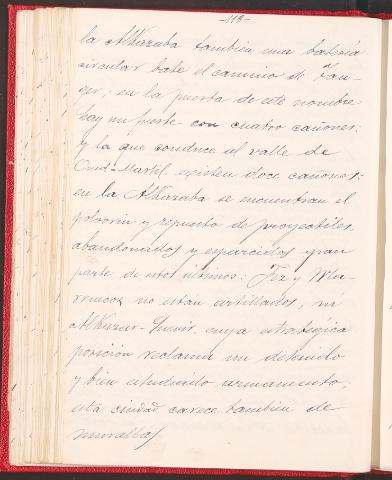 -119-
la Alkazaba también una batería
circular bate el camino de Tán-
ger; en la puerta de este nombre
hay un fuerte con cuatro cañones;
y la que conduce al valle de
Oued-Martil existen doce cañones;
en la Alkazaba se encuentran el
polvorín y repuesto de proyectiles,
abandonados y esparcidos gran
parte de estos últimos: Fez y Ma-
rruecos no están artillados, ni
Alkazar-Quivir cuya estratégica
posición reclama un detenido
y bien estudiado armamento;
esta ciudad carece también de
murallas